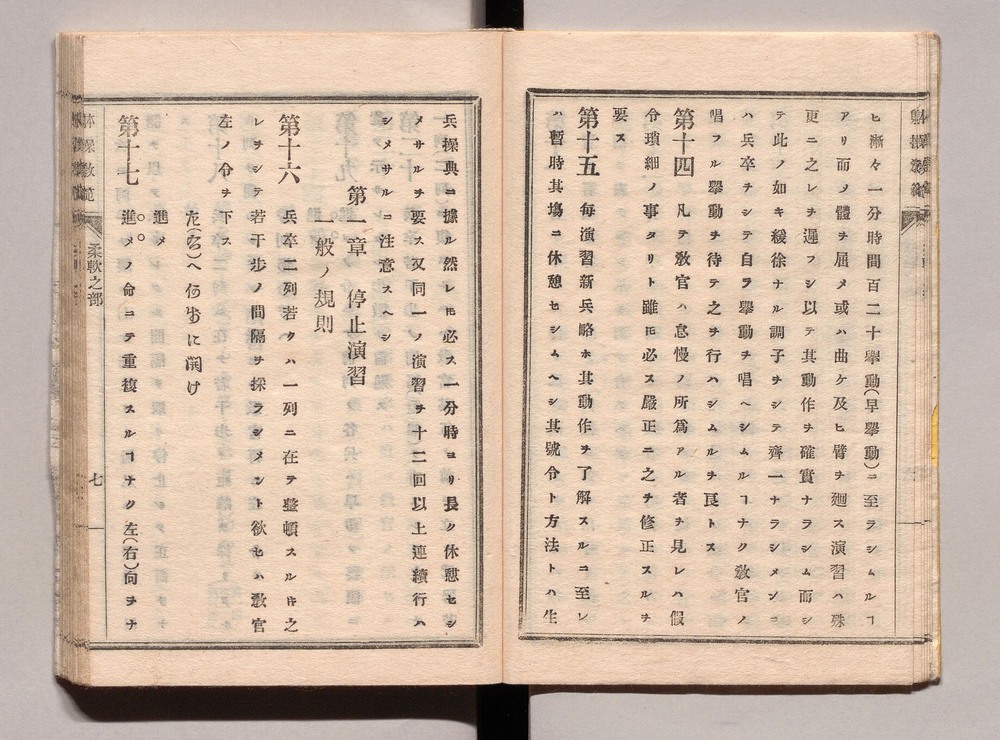 ヒ漸々一分時間百二十擧動(早擧動)ニ至ラシムルヿ
アリ而ノ體ヲ屈メ或ハ曲ケ及ヒ臂ヲ廻ス演習ハ殊
更ニ之レヲ遲フシ以テ其動作ヲ確實ナラシム而シ
テ此ノ如キ緩徐ナル調子ヲシテ齊一ナラシメンニ
ハ兵卒ヲシテ自ラ擧動ヲ唱ヘシムルヿナク敎官ノ
唱フル擧動ヲ待テ之ヲ行ハシムルヲ良トス
第十四 凡テ敎官ハ怠慢ノ所爲アル者ヲ見レハ假
令瑣細ノ事タリト雖𪜈必ス嚴正ニ之ヲ修正スルヲ
要ス
第十五 毎演習新兵略ホ其動作ヲ了解スルニ至レ
ハ暫時其塲ニ休憩セシムヘシ其號令ト方法トハ生
兵操典ニ據ル然レ𪜈必ス一分時ヨリ長ク休憩セシ
メサルヲ要ス又同一ノ演習ヲ十二回以上連續行ハ
シメサルニ注意スヘシ
第一章 停止演習
一般ノ規則
第十六 兵卒二列若クハ一列ニ在テ整頓スルキ之
レヲシテ若干步ノ間隔ヲ採ラシメント欲セハ敎官
左ノ令ヲ下ス
左(右)へ何步に開け
進メ
第十七 進メノ命ニテ重複スルヿナク左(右)向ヲナ
柔軟之部
七